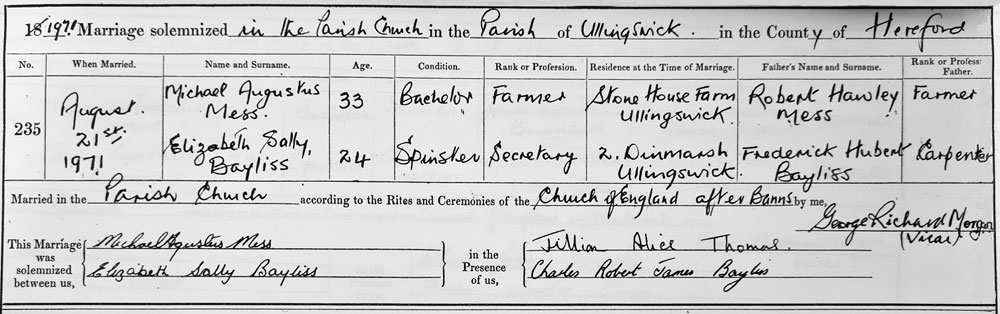 18 1971 Marriage solemnized in the Parish Church in the Parish of Ullingswick. in the County of Hereford
No. When Married. Name and Surname. Age. Condition. Rank or Profession. Residence at the Time of Marriage. Father's Name and Surname. Rank or Profess Father.
235 August 21st. 1971 Michael Augustus Mess. 33 Bachelor Farmer Stone House Farm Ullingswick. Robert Hawley Mess Farmer
Elizabeth Sally, Bayliss 24 Spinster Secretary 2, Dinmarsh Ullingswick. Frederick Hubert Bayliss Carpenter
Married in the Parish Church according to the Rites and Ceremonies of the Church of England after Banns by me,
George Richard Morgan
(Vicar)
This Marriage was solemnized between us, Michael Agustus Mess in the Presence of us, Jillian Alice Thomas.
Elizabeth Sally Bayliss Charles Robert James Bayliss